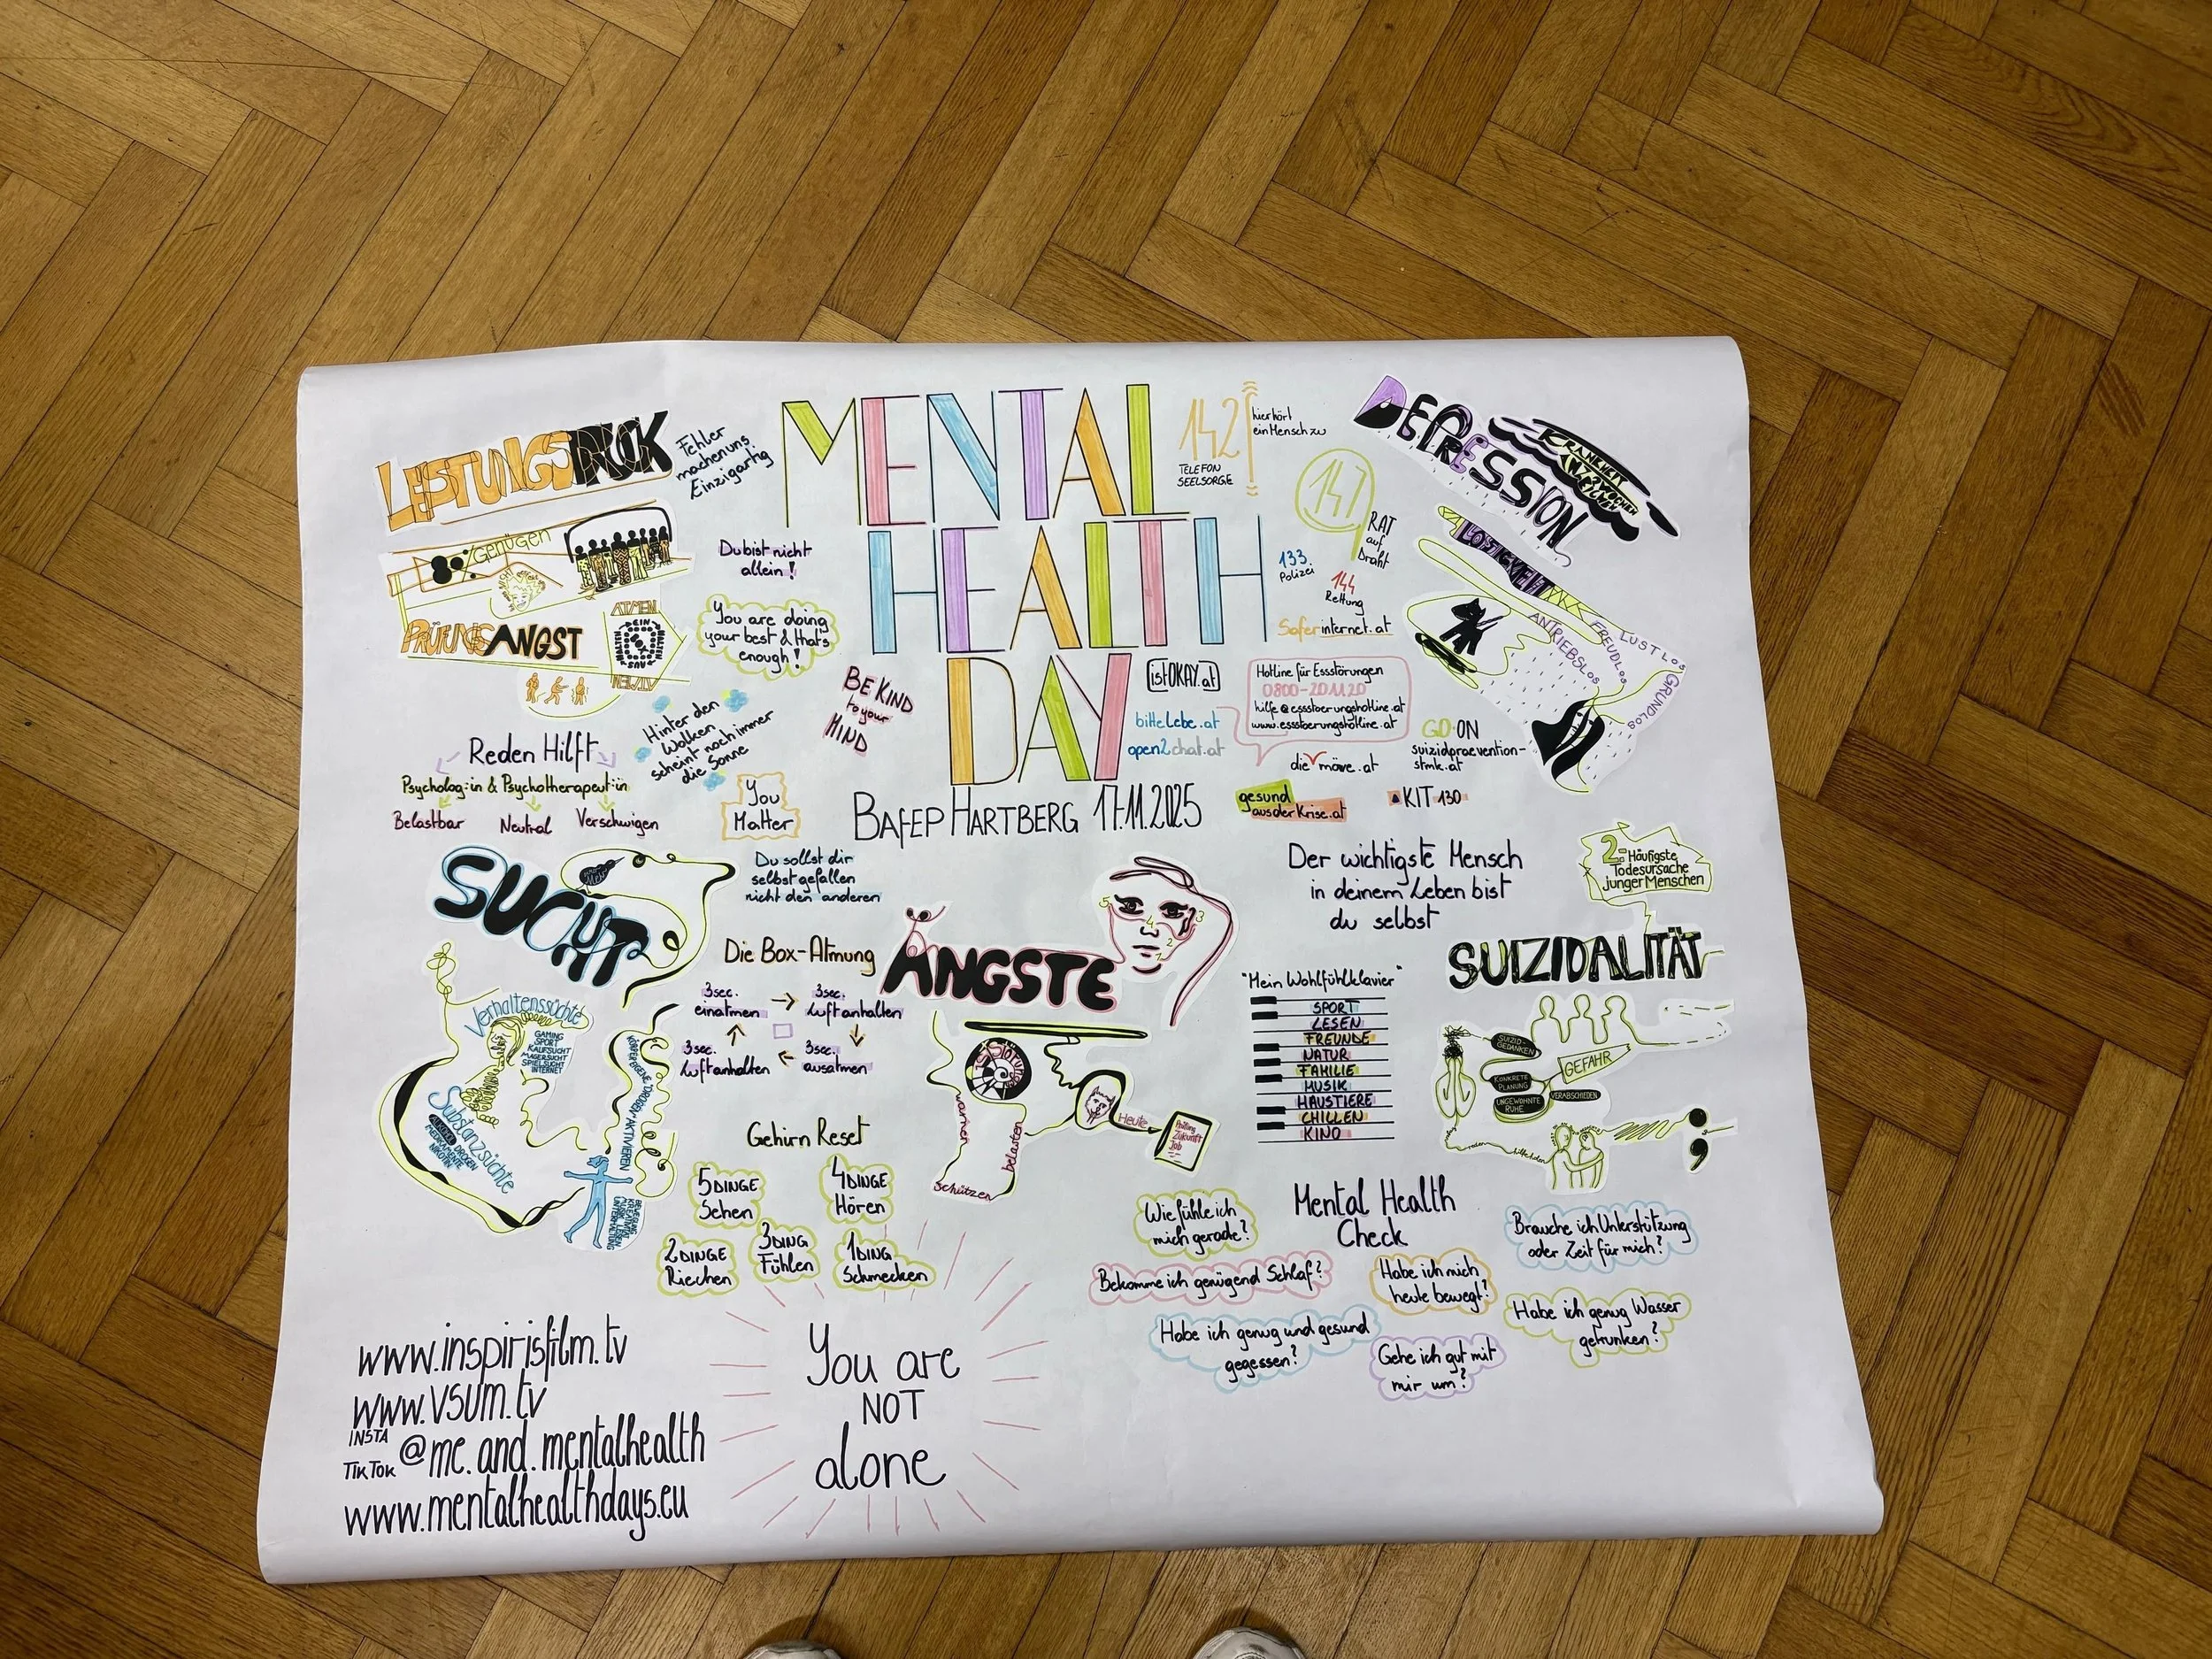 LEISTUNGSDRUCK
Fehler
machen uns
Einzigartig
80% genügen
PRÜFUNGSANGST
ATMEN
EIN
HALTEN
AUS
HALTEN
ATMEN
Du bist nicht
allein!
You are doing
your best & that's
enough!
Hinter den
Wolken
scheint noch immer
die Sonne
BE KIND
to your
MIND
Reden Hilft
Psycholog:in & Psychotherapeut:in
Belastbar
Neutral
Verschwigen
You
Matter
MENTAL
HEALTH
DAY
BAfEP HARTBERG 17.11.2025
142
TELEFON
SEELSORGE
hier hört
ein Mensch zu
147
RAT
auf
Draht
133
Polizei
144
Rettung
Saferinternet.at
istOKAY.at
bittelebe.at
open2chat.at
Hotline für Essstörungen
0800-20 11 20
hilfe@essstoerungshotline.at
www.essstoerungshotline.at
die möwe.at
GO-ON
suizidpraevention-
stmk.at
gesund
ausderKrise.at
KIT 130
DEPRESSION
KRANKHEIT
LOSIGKEIT
ANTRIEBSLOS
FREUDLOS
LUSTLOS
GRUNDLOS
SUCHT
Du sollst dir
selbst gefallen
nicht den anderen
Verhaltenssüchte
GAMING
SPORT
KAUFSUCHT
MAGERSUCHT
SPIELSUCHT
INTERNET
Substanzsüchte
ALKOHOL
DROGEN
MEDIKAMENTE
NIKOTIN
KÖRPEREIGENE "DROGEN" AKTIVIEREN
BEWEGUNG
KREATIVITÄT
Die Box-Atmung
3sec.
einatmen
3sec.
Luft anhalten
3sec.
Luft anhalten
3sec.
ausatmen
Gehirn Reset
5 DINGE
Sehen
4 DINGE
Hören
3 DING
Fühlen
2 DINGE
Riechen
1 DING
Schmecken
ÄNGSTE
5
4
3
2
1
warnen
belasten
schützen
Heute
Prüfung
Zukunft
Job
Der wichtigste Mensch
in deinem Leben bist
du selbst
"Mein Wohlfühlklavier"
SPORT
LESEN
FREUNDE
NATUR
FAMILIE
MUSIK
HAUSTIERE
CHILLEN
KINO
2.
Häufigste
Todesursache
junger Menschen
SUIZIDALITÄT
SUIZID-
GEDANKEN
KONKRETE
PLANUNG
UNGEWOHNTE
RUHE
GEFAHR
VERABSCHIEDEN
reden
hilfe holen
;
Mental Health
Check
Wie fühle ich
mich gerade?
Bekomme ich genügend Schlaf?
Habe ich mich
heute bewegt?
Brauche ich Unterstützung
oder Zeit für mich?
Habe ich genug und gesund
gegessen?
Gehe ich gut mit
mir um?
Habe ich genug Wasser
getrunken?
www.inspirisfilm.tv
www.vsum.tv
INSTA
TIKTOK @me.and.mentalhealth
www.mentalhealthdays.eu
You are
NOT
alone